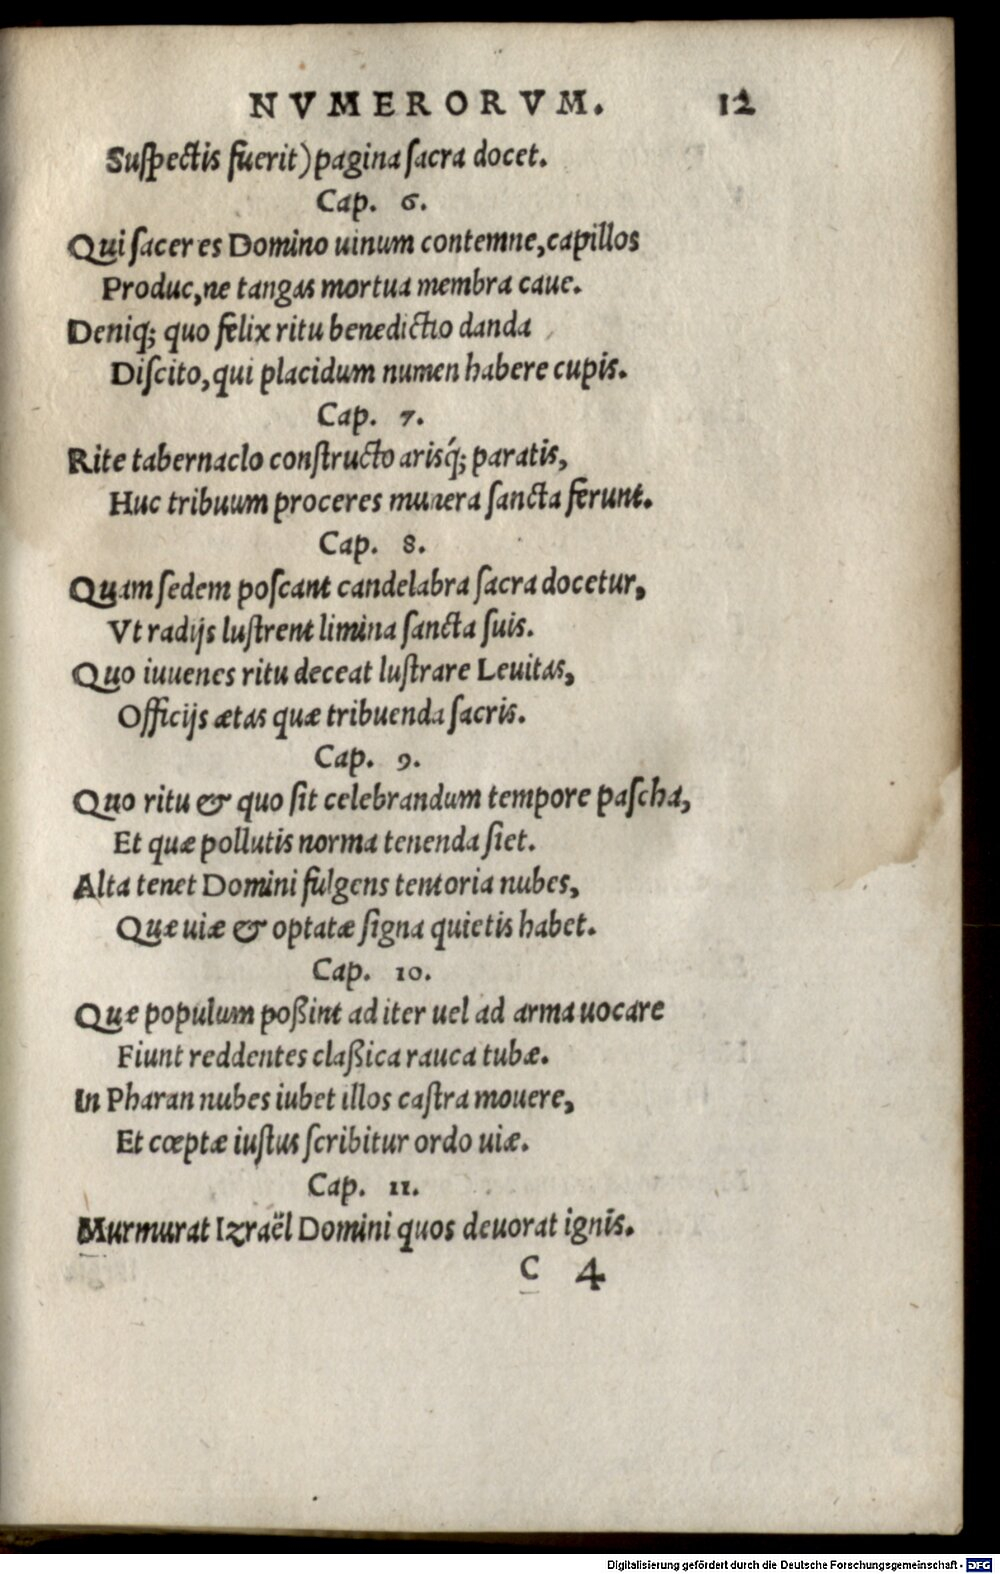 NVMERORVM. 12
Suſpectis fuerit) pagina ſacra docet.
Cap. 6.
Qui ſacer es Domino uinum contemne, capillos
Produc, ne tangas mortua membra caue.
Deniq; quo felix ritu benedictio danda
Diſcito, qui placidum numen habere cupis.
Cap. 7.
Rite tabernaclo conſtructo arisq́; paratis,
Huc tribuum proceres munera ſancta ferunt.
Cap. 8.
Quam ſedem poſcant candelabra ſacra docetur,
Vt radijs luſtrent limina ſancta ſuis.
Quo iuuenes ritu deceat luſtrare Leuitas,
Officijs ætas quæ tribuenda ſacris.
Cap. 9.
Quo ritu & quo ſit celebrandum tempore paſcha,
Et quæ pollutis norma tenenda ſiet.
Alta tenet Domini fulgens tentoria nubes,
Quæ uiæ & optatæ ſigna quietis habet.
Cap. 10.
Quæ populum poßint ad iter uel ad arma uocare
Fiunt reddentes claßica rauca tubæ.
In Pharan nubes iubet illos caſtra mouere,
Et cœptæ iuſtus ſcribitur ordo uiæ.
Cap. 11.
Murmurat Izraël Domini quos deuorat ignis.
C 4
Digitalisierung gefördert durch die Deutsche Forschungsgemeinschaft - DFG